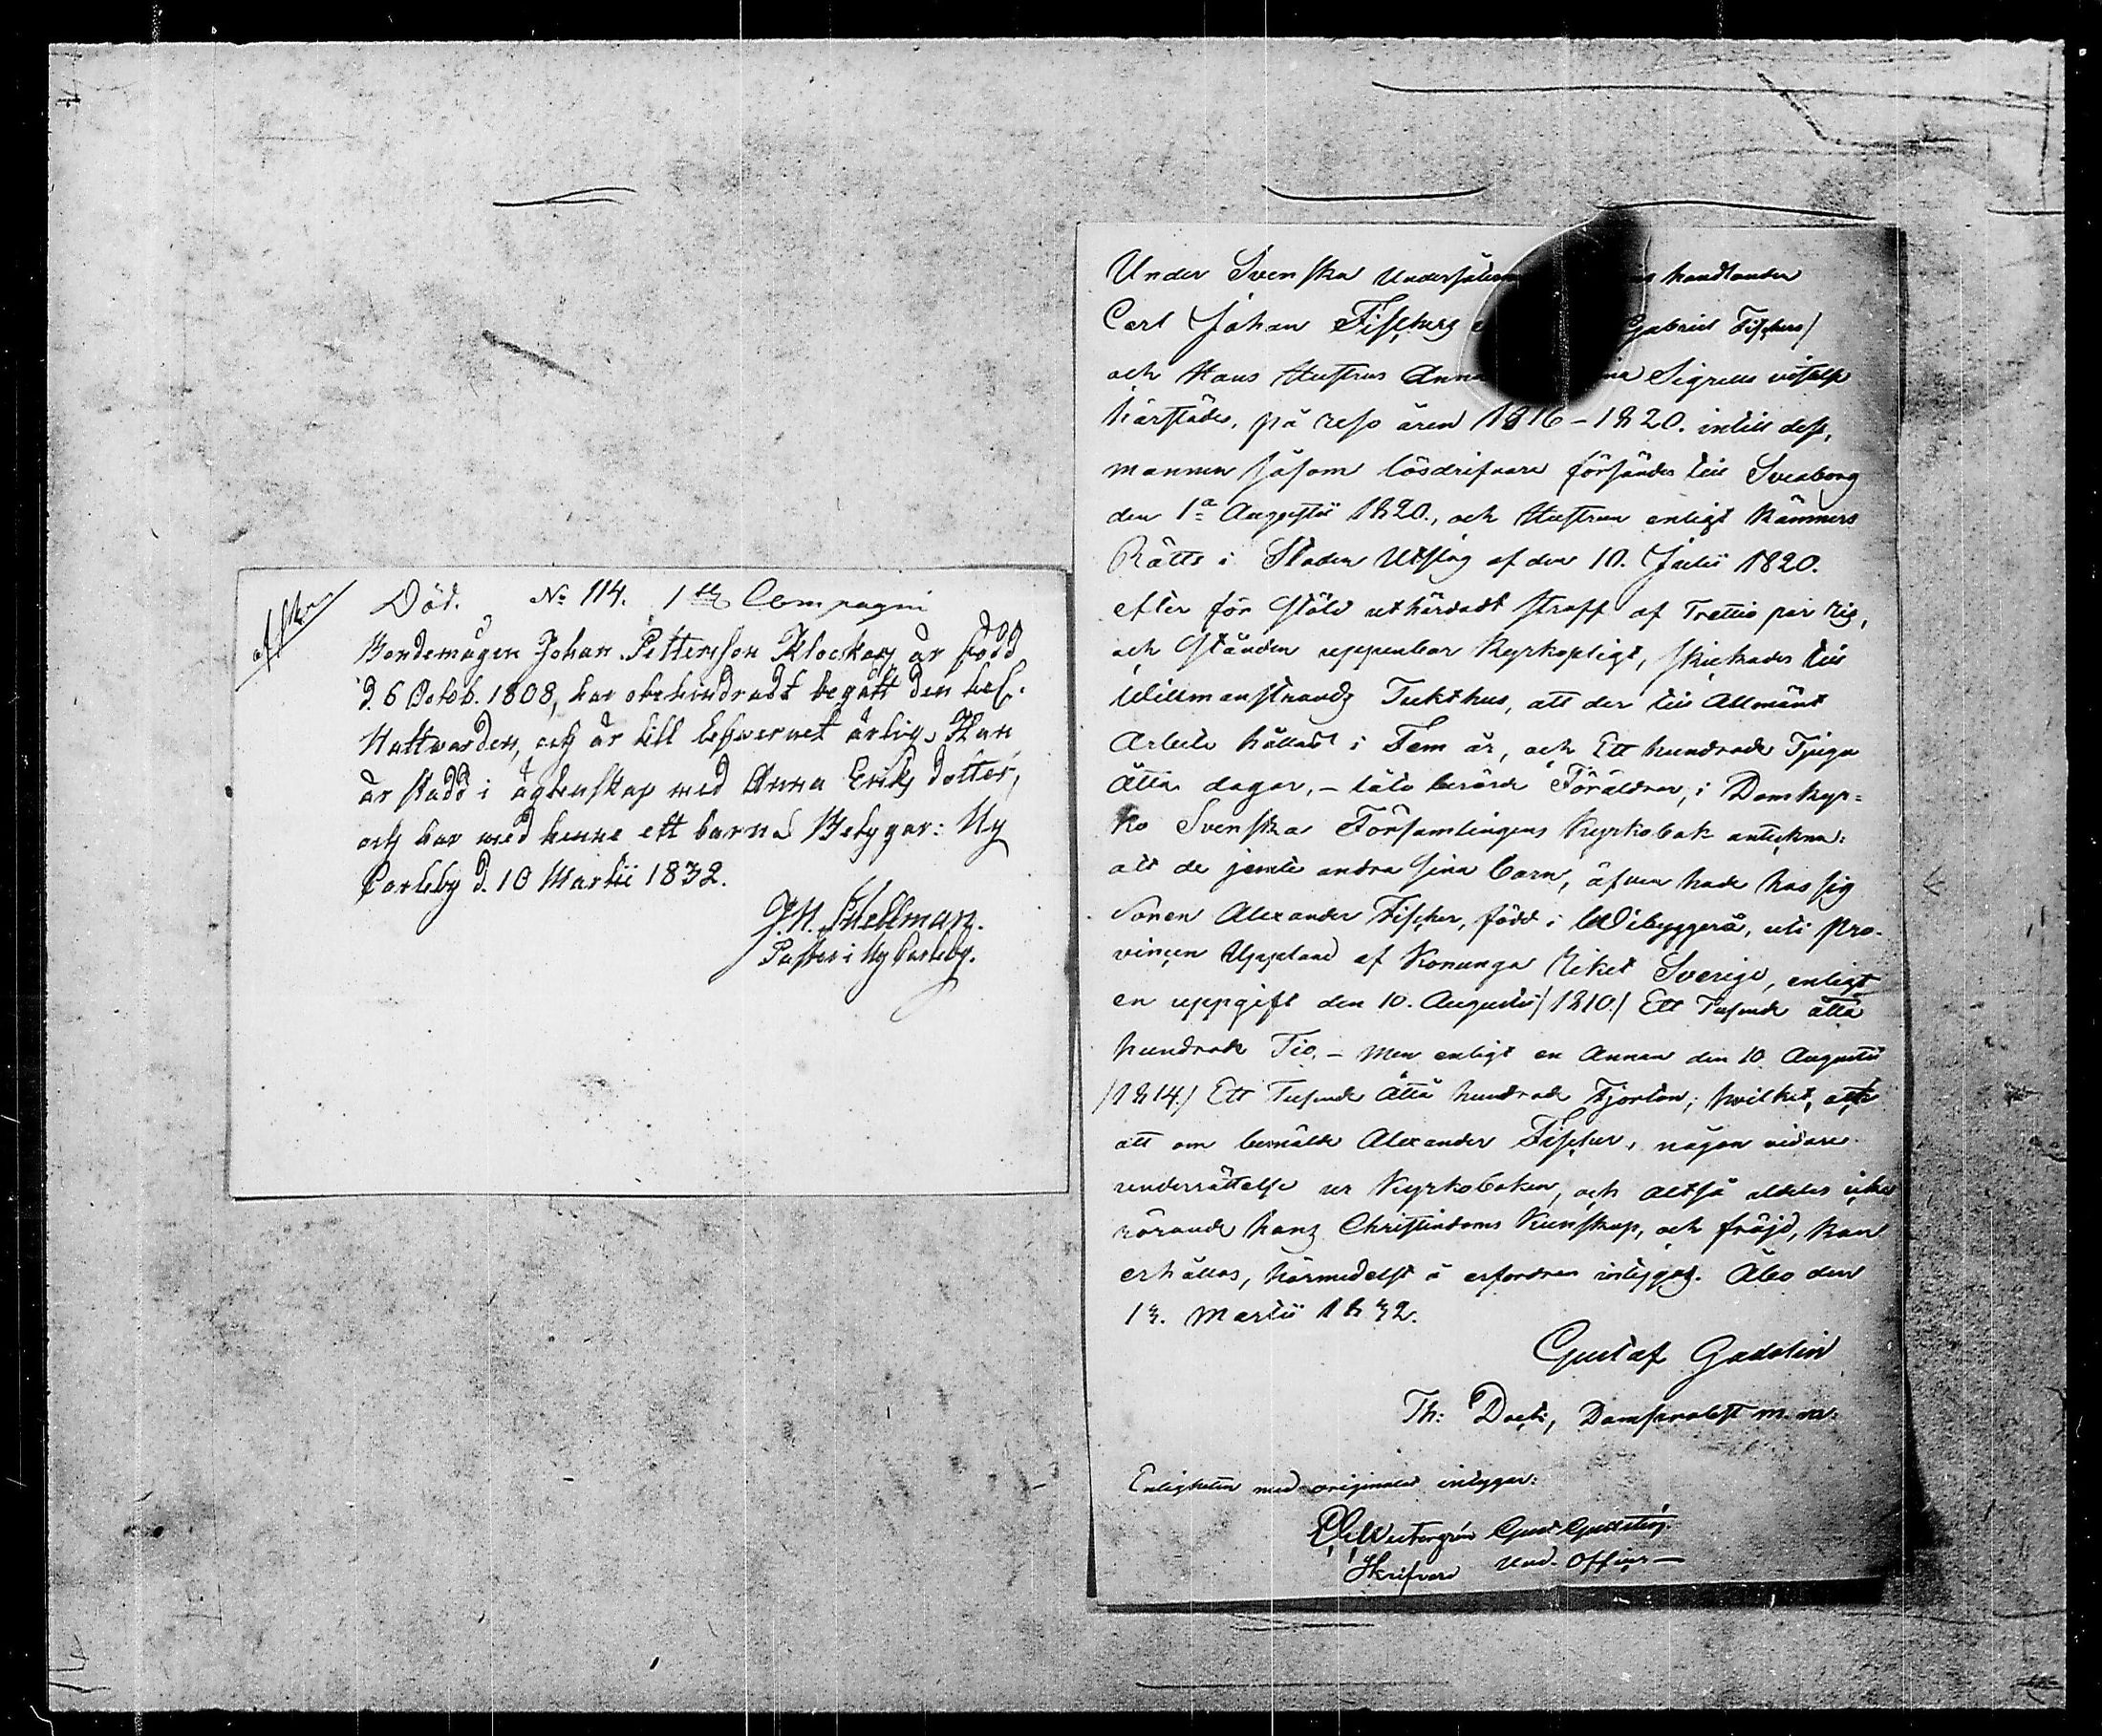 afskr.
Död. No 114. 1sta Compagni
Bondemågen Johan Pettersson Klockars är född
d. 6 Octob. 1808, har obehindradt begått den hel.
Nattvarden, och är till lefvernet ärlig. Han
är stadd i ägtenskap med Anna Eriks dotter,
och har med henne ett barn. Betygar: Ny
Carleby d. 10 Martii 1832.
Pastor i Ny Carleby.
Under Svenska Undersåten handlanden
Carl Johan Fischers Gabriel Fischers/
och Hans Hustrus Anna Sigrens vistelse
härstädes, på reso åren 1816-1820. intill dess,
mannen såsom lösdrifvare försändes till Sveaborg
den 1a Augustii 1820., och Hustrun enligt Kämners
Rätts i Staden Utslag af den 10. Julii 1820.
efter för Stöld uthärdadt straff af Trettio par ris,
och Stånden uppenbar Kyrkopligt, skickades till
Willmanstrands Tukthus, att der till Allmänt
Arbete hållas i Fem år, och Ett hundrade Tjugu
Åtta dagar, - läto berörde Föräldrar, i Domkyr-
ko Svenska Församlingens Kyrkobok anteckna:
att de jemte andra sina barn, äfven hade hos sig
Sonen Alexander Fischer, född i Wibyggerå, uti Pro-
vincen Uppland af Konunga Riket Sverige, enligt
en uppgift den 10. Augustii /1810./ Ett Tusende åtta
hundrade Tio. - Men enligt en Annan den 10 Augustii
/1814./ Ett Tusende Åtta hundrade Fjorton; hvilket, och
att om bemälte Alexander Fischer, någon vidare
underrättelse ur Kyrkoboken, och altså aldeles icke
rörande hans Christendoms Kunskap, och fräjd, kan
erhållas, härmedelst å erfordran intygas. Åbo den
13. Martii 1832.
Gustaf Gadolin
Th: Doct:, Domprobst m. m.
Enligheten med originalet intygar:
Skrifvare Und. Officer